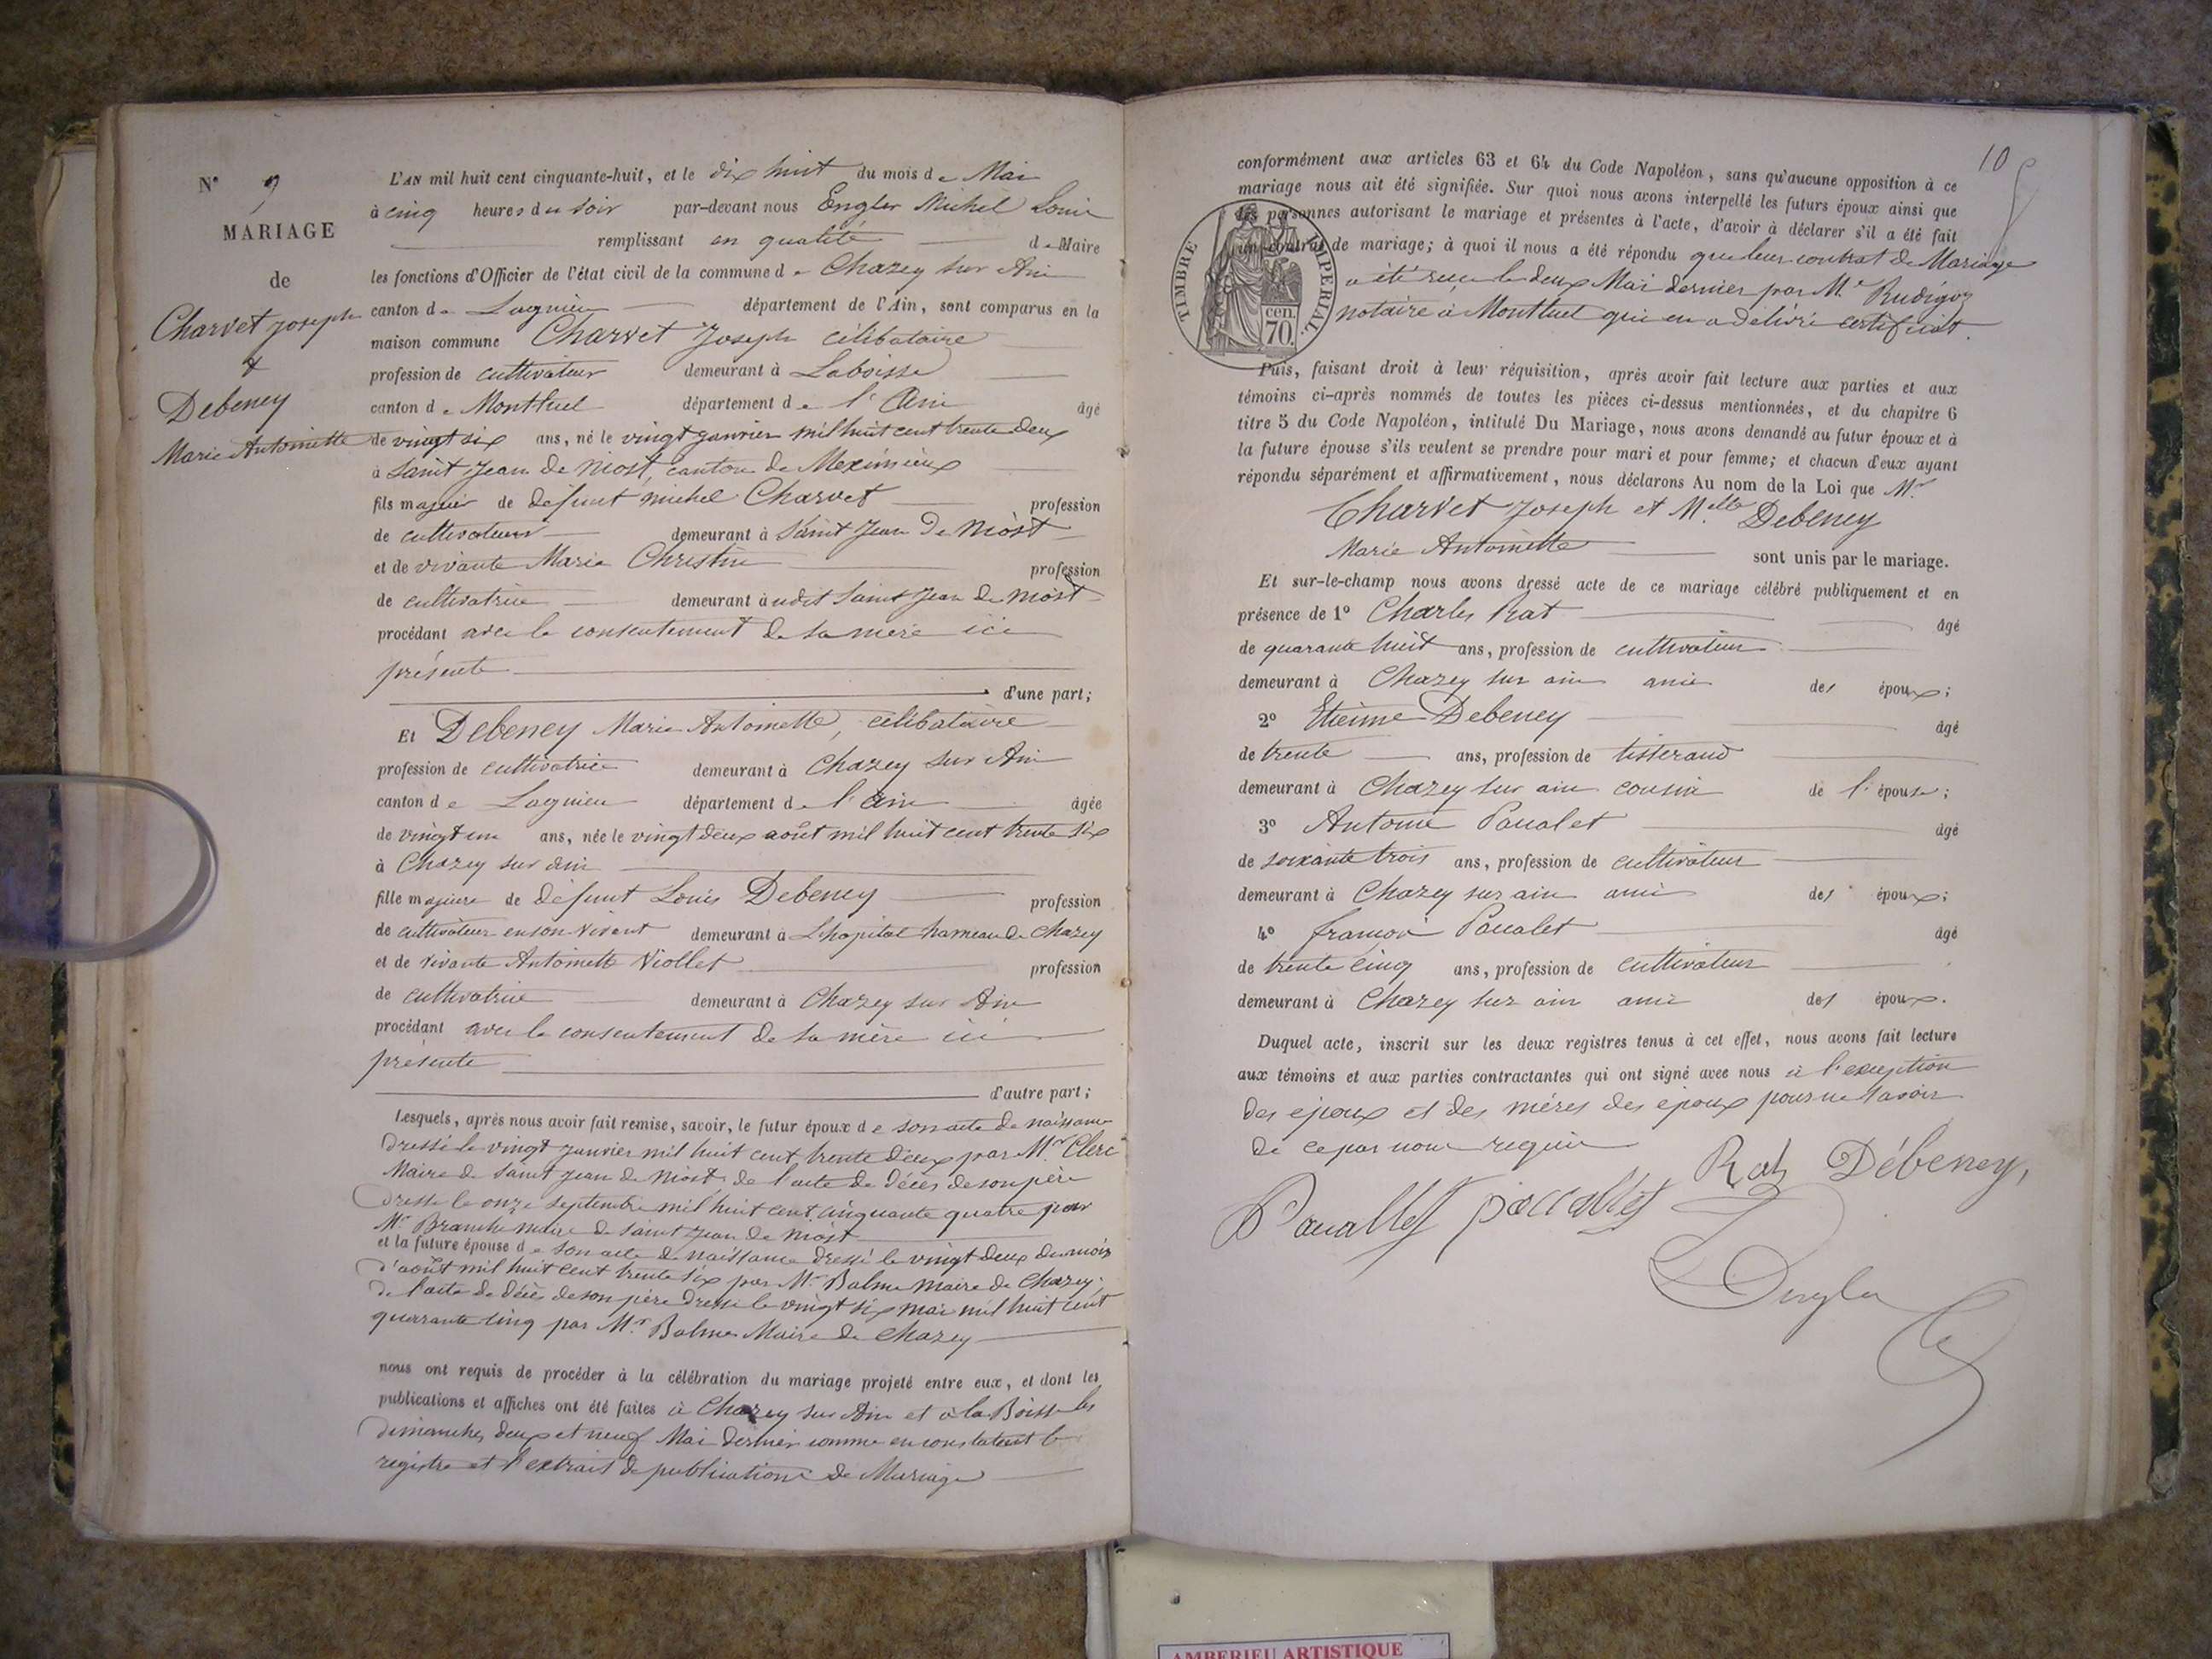 N° 9
MARIAGE
de
Charvet Joseph
&
Debeney
Marie Antoinette
L'AN mil huit cent cinquante-huit, et le dix huit du mois de Mai
à cinq heures du soir par-devant nous Engler Michel Louis
remplissant en qualité de Maire
les fonctions d'Officier de l'état civil de la commune de Chazey sur Ain
canton de Lagnieu département de l'Ain, sont comparus en la
maison commune Charvet Joseph célibataire
profession de cultivateur demeurant à Laboisse
canton de Montluel département de l'Ain âgé
de vingt six ans, né le vingt janvier mil huit cent trente deux
à Saint Jean de Niost, canton de Meximieux
fils majeur de défunt michel Charvet profession
de cultivateur demeurant à Saint Jean De Niost
et de vivante Marie Christin profession
de cultivatrice demeurant à udit Saint Jean de Niost
procédant avec le consentement de sa mère ici
présente
d'une part;
Et Debeney Marie Antoinette, célibataire
profession de cultivatrice demeurant à Chazey sur Ain
canton de Lagnieu département de l'Ain âgée
de vingt un ans, née le vingt deux août mil huit cent trente six
à Chazey sur ain
fille majeure de défunt Louis Debeney profession
de cultivateur en son vivant demeurant à L'hopital hameau de Chazey
et de vivante Antoinette Viollet profession
de cultivatrice demeurant à Chazey sur Ain
procédant avec le consentement de sa mère ici
présente
d'autre part;
Lesquels, après nous avoir fait remise, savoir, le futur époux de son acte de naissance
dressé le vingt janvier mil huit cent trente deux par Mr Clerc
Maire de Saint Jean de Niost de l'acte de décès de son père
dressé le onze septembre mil huit cent cinquante quatre par
Mr Branche maire de Saint Jean de Niost
et la future épouse de son acte de naissance dressé le vingt deux du mois
d'août mil huit cent trente six par Mr Balme Maire de Chazey
de l'acte de décès de son père dressé le vingt six mai mil huit cent
quarante cinq par Mr Balme Maire de Chazey
nous ont requis de procéder à la célébration du mariage projeté entre eux, et dont les
publications et affiches ont été faites à Chazey sur Ain et à la Boisse les
dimanches deux et neuf Mai dernier comme en constatent le
registre et l'extrait de publications de Mariage
10
conformément aux articles 63 et 64 du Code Napoléon, sans qu'aucune opposition à ce
mariage nous ait été signifiée. Sur quoi nous avons interpellé les futurs époux ainsi que
les personnes autorisant le mariage et présentes à l'acte, d'avoir à déclarer s'il a été fait
un contrat de mariage; à quoi il nous a été répondu que leur contrat de Mariage
a été reçu le deux Mai dernier par Me Rudigoz
notaire à Montluel qui en a délivré certificat.
TIMBRE IMPERIAL.
cen.
70.
Puis, faisant droit à leur réquisition, après avoir fait lecture aux parties et aux
témoins ci-après nommés de toutes les pièces ci-dessus mentionnées, et du chapitre 6
titre 5 du Code Napoléon, intitulé Du Mariage, nous avons demandé au futur époux et à
la future épouse s'ils veulent se prendre pour mari et pour femme; et chacun d'eux ayant
répondu séparément et affirmativement, nous déclarons Au nom de la Loi que Mr
Charvet Joseph et Melle Debeney
Marie Antoinette sont unis par le mariage.
Et sur-le-champ nous avons dressé acte de ce mariage célébré publiquement et en
présence de 1° Charles Rat âgé
de quarante huit ans, profession de cultivateur
demeurant à Chazey sur ain ami des époux;
2° Etienne Debeney âgé
de trente ans, profession de tisserand
demeurant à Chazey sur ain cousin de l'épouse;
3° Antoine Pacalet âgé
de soixante trois ans, profession de cultivateur
demeurant à Chazey sur ain ami des époux;
4° françois Pacalet âgé
de trente cinq ans, profession de cultivateur
demeurant à Chazey sur ain ami des époux.
Duquel acte, inscrit sur les deux registres tenus à cet effet, nous avons fait lecture
aux témoins et aux parties contractantes qui ont signé avec nous à l'exception
des époux et des mères des époux pour ne savoir
de ce par nous requis
Rat Débeney,
Pacallet paccallet
Engler
AMBERIEU ARTISTIQUE